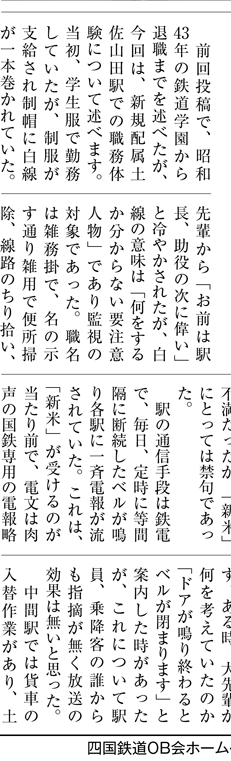 前回投稿で、昭和
43年の鉄道学園から
退職までを述べたが、
今回は、新規配属土
佐山田駅での職務体
験について述べます。
当初、学生服で勤務
していたが、制服が
支給され制帽に白線
が一本巻かれていた。
先輩から「お前は駅
長、助役の次に偉い」
と冷やかされたが、白
線の意味は「何をする
か分からない要注意
人物」であり監視の
対象であった。職名
は雑務掛で、名の示
す通り雑用で便所掃
除、線路のちり拾い、
不満だったが「新米」
にとっては禁句であっ
た。
駅の通信手段は鉄電
で、毎日、定時に等間
隔に断続したベルが鳴
り各駅に一斉電報が流
されていた。これは、
「新米」が受けるのが
当たり前で、電文は肉
声の国鉄専用の電報略
す。ある時、大先輩が
何を考えていたのか
「ドアが鳴り終わると
ベルが閉まります」と
案内した時があった
が、これについて駅
員、乗降客の誰から
も指摘が無く放送の
効果は無いと思った。
中間駅では貨車の
入替作業があり、土
四国鉄道OB会ホーム